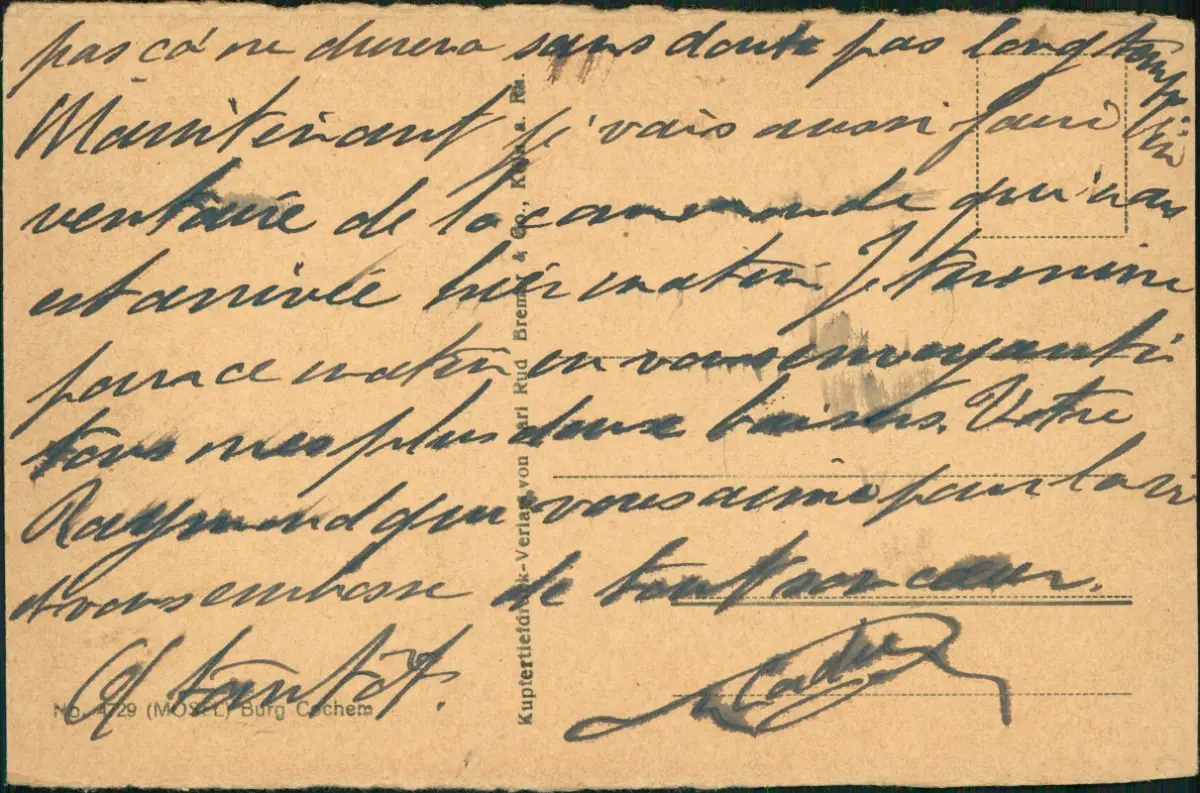 pas ça ne durera sans doute pas longtemps
Maintenant je vais aussi faire l'in
ventaire de la commande qui nous
est arrivée hier matin. Je termine
pour ce matin en vous envoyant à
tous mes plus doux baisers. Votre
Raymond qui vous aime pour la vie
et vous embrasse de tout son cœur.
A tantôt.
No. 4729 (MOSEL) Burg Cochem
Kupfertiefdruck-Verlag von Carl Rud Bremer & Co., Köln a. Rh.